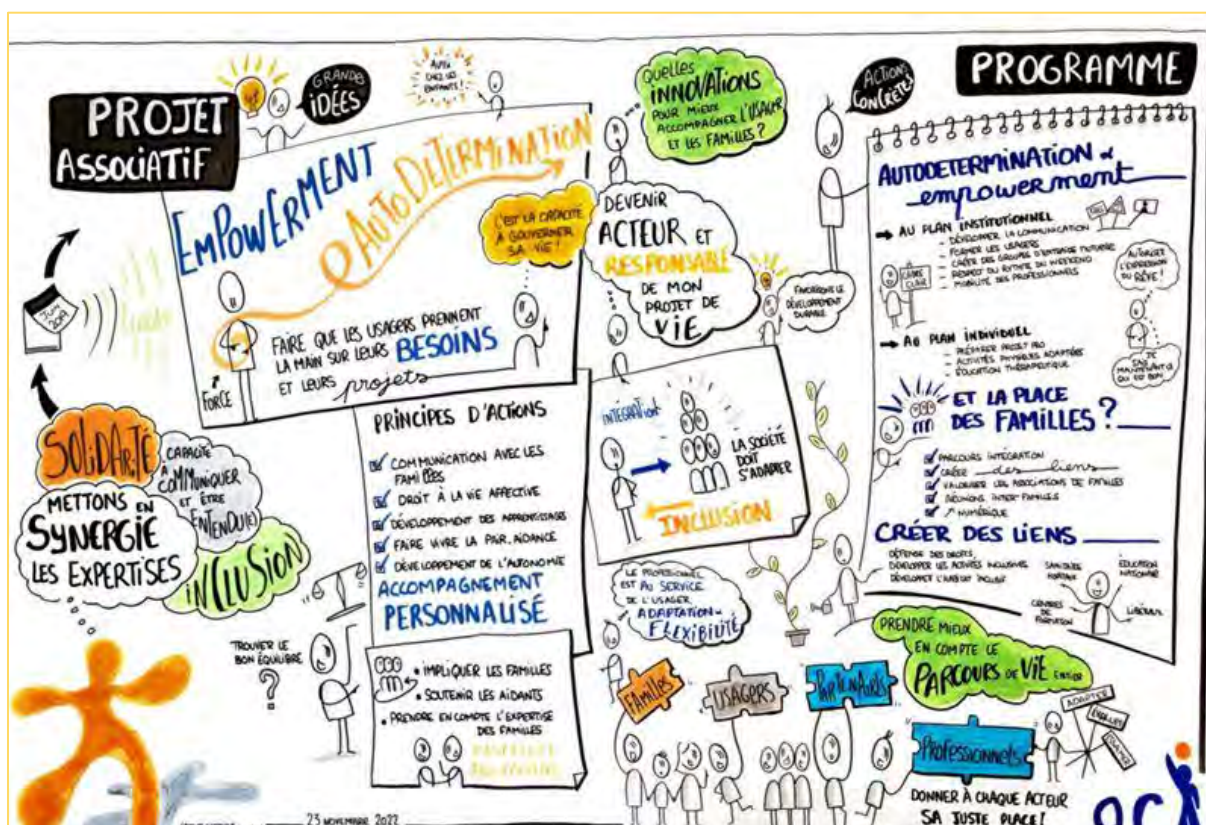 PROJET
ASSOCIATIF
GRANDES
IDÉES
AUSSI
CHEZ LES
ENFANTS!
EMPOWERMENT
AUTODETERMINATION
C'EST LA CAPACITÉ
À GOUVERNER
SA VIE!
FORCE
FAIRE QUE LES USAGERS PRENNENT
LA MAIN SUR LEURS BESOINS
ET LEURS projets
JUIN
2019
SOLIDARITÉ
CAPACITÉ
À
COMMUNIQUER
ET ÊTRE
ENTENDU(E)
METTONS EN
SYNERGIE
LES EXPERTISES
INCLUSION
PRINCIPES D'ACTIONS
COMMUNICATION AVEC LES
FAMILLES
DROIT À LA VIE AFFECTIVE
DÉVELOPPEMENT DES APPRENTISSAGES
FAIRE VIVRE LA PAIR.AIDANCE
DÉVELOPPEMENT DE L'AUTONOMIE
ACCOMPAGNEMENT
PERSONNALISÉ
TROUVER LE
BON ÉQUILIBRE
?
IMPLIQUER LES FAMILLES
SOUTENIR LES AIDANTS
PRENDRE EN COMPTE L'EXPERTISE
DES FAMILLES
23 NOVEMBRE 2022
QUELLES
INNOVATIONS
POUR MIEUX
ACCOMPAGNER L'USAGER
ET LES FAMILLES?
DEVENIR
ACTEUR ET
RESPONSABLE
DE MON
PROJET DE
VIE
FAVORISONS LE
DÉVELOPPEMENT
DURABLE
INTÉGRATION
LA SOCIÉTÉ
DOIT
S'ADAPTER
INCLUSION
LE PROFESSIONNEL
EST AU SERVICE
DE L'USAGER
ADAPTATION
FLEXIBILITÉ
FAMILLES
USAGERS
PARTENAIRES
PROFESSIONNELS
DONNER À CHAQUE ACTEUR
SA JUSTE PLACE!
PRENDRE MIEUX
EN COMPTE LE
PARCOURS DE VIE ENTIER
ADAPTER
ÉVALUER
ACTIONS
CONCRÈTES
PROGRAMME
AUTODETERMINATION &
empowerment
AU PLAN INSTITUTIONNEL
- DÉVELOPPER LA COMMUNICATION
- FORMER LES USAGERS
- CRÉER DES GROUPES D'ENTRAIDE MUTUELLE
- RESPECT DU RYTHME DU WEEKEND
- MOBILITÉ DES PROFESSIONNELS
CADRE
CLAIR
AUTORISER
L'EXPRESSION
DU RÊVE!
AU PLAN INDIVIDUEL
- PRÉPARER PROJET PRO
- ACTIVITÉS PHYSIQUES ADAPTÉES
- ÉDUCATION THÉRAPEUTIQUE
ET LA PLACE
DES FAMILLES?
PARCOURS INTÉGRATION
CRÉER des liens
VALORISER LES ASSOCIATIONS DE FAMILLES
RÉUNIONS INTER FAMILLES
NUMÉRIQUE
CRÉER DES LIENS
DÉFENSE DES DROITS
DÉVELOPPER LES ACTIVITÉS INCLUSIVES
DÉVELOPPER L'HABITAT INCLUSIF
ÉDUCATION
NATIONALE
CENTRES
DE
FORMATION
LIBÉRAUX